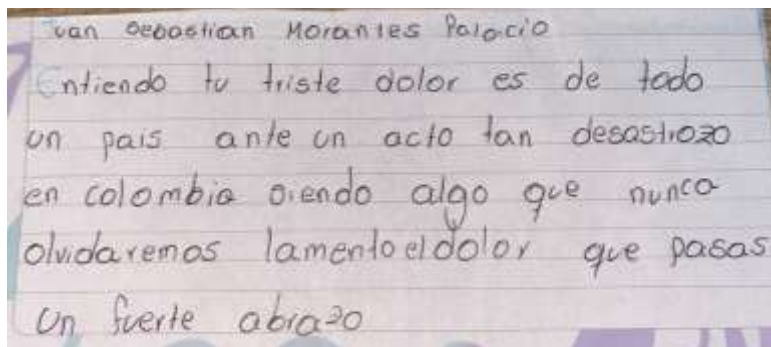 Juan Sebastian Morantes Palacio
Entiendo tu triste dolor es de todo
un pais ante un acto tan desastrozo
en colombia siendo algo que nunca
olvidaremos lamento el dolor que pasas
un fuerte abrazo